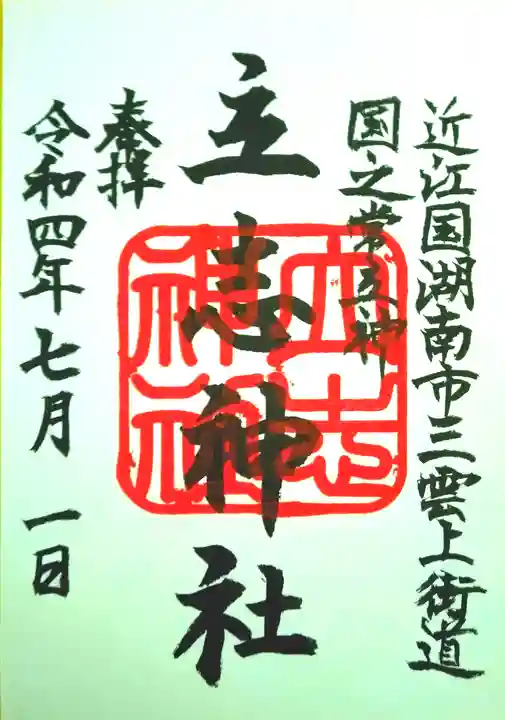 近江国湖南市三雲上街道
国之常立神
立志神社
立志神社
奉拝
令和四年七月一日